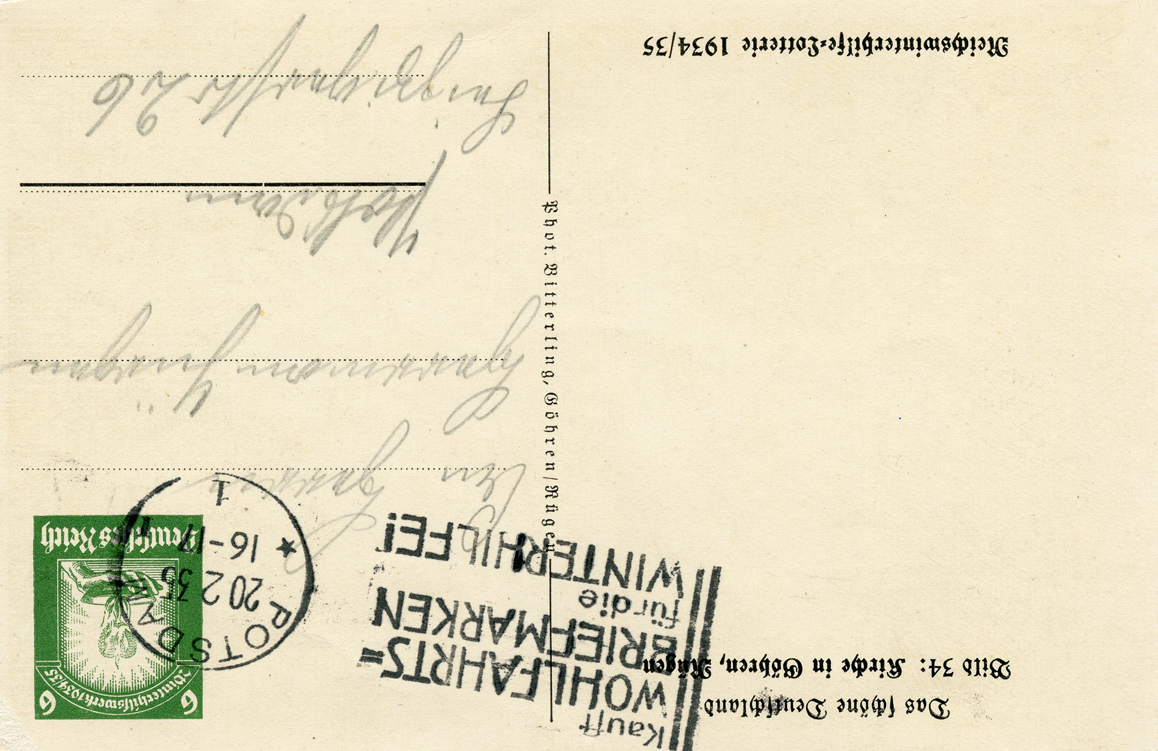 Das schöne Deutschland
Bild 34: Kirche in Göhren, Rügen
Reichswinterhilfe-Lotterie 1934/35
Phot. Bitterling, Göhren/Rügen
Kauft
WOHLFAHRTS=
BRIEFMARKEN
für die
WINTERHILFE!
POTSDAM
20.2.35
16-17
1
6 Winterhilfswerk 1934/35 6
Deutsches Reich
An Herrn
Herrmann
Potsdam
26